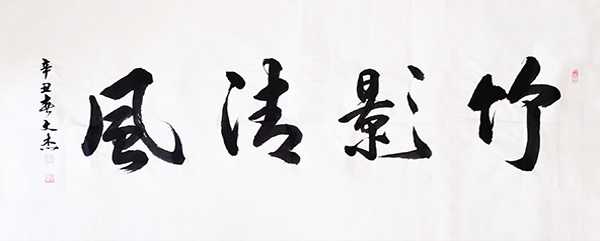 竹影清風
辛丑春文杰